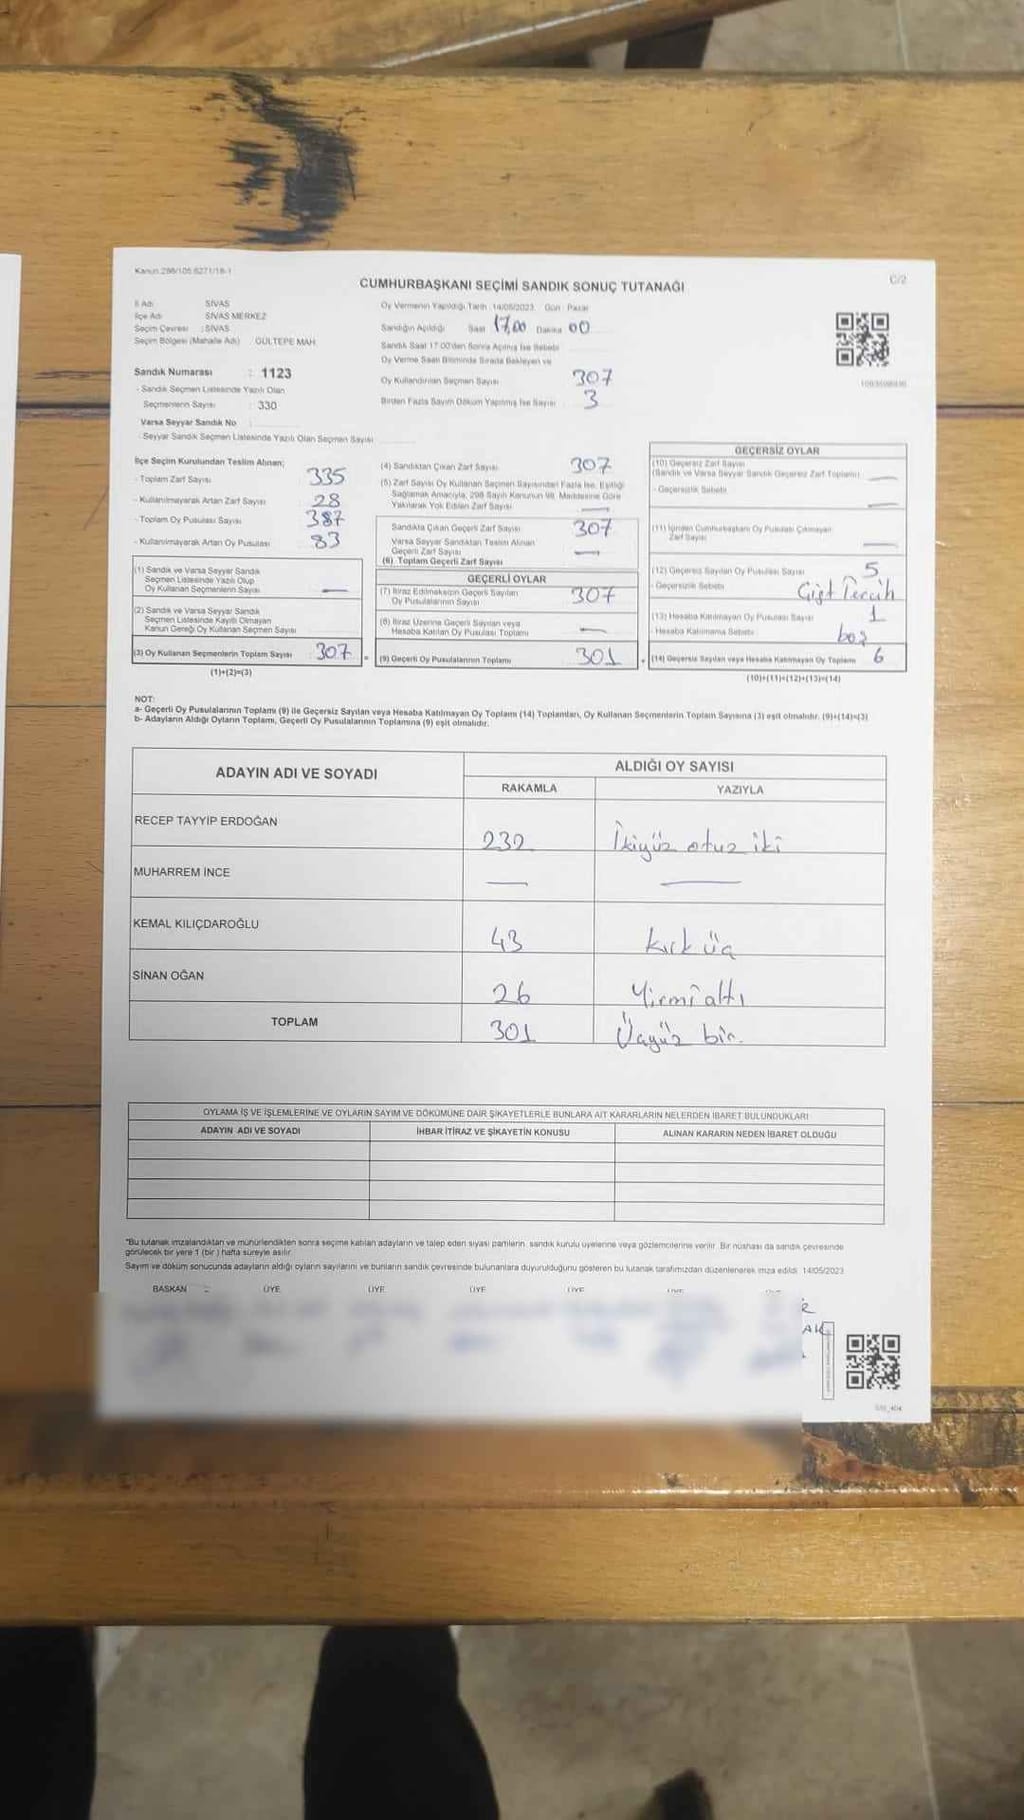 Kanun:298/105.6271/18-1
C/2
CUMHURBAŞKANI SEÇİMİ SANDIK SONUÇ TUTANAĞI
İl Adı SİVAS
İlçe Adı SİVAS MERKEZ
Seçim Çevresi : SİVAS
Seçim Bölgesi (Mahalle Adı) GÜLTEPE MAH.
Sandık Numarası : 1123
- Sandık Seçmen Listesinde Yazılı Olan
Seçmenlerin Sayısı : 330
Varsa Seyyar Sandık No
- Seyyar Sandık Seçmen Listesinde Yazılı Olan Seçmen Sayısı
Oy Vermenin Yapıldığı Tarih 14/05/2023 Gün Pazar
Sandığın Açıldığı Saat 17,00 Dakika 00
Sandık Saat 17.00'den Sonra Açılmış İse Sebebi
Oy Verme Saati Bitiminde Sırada Bekleyen ve
Oy Kullandırılan Seçmen Sayısı 307
Birden Fazla Sayım Döküm Yapılmış İse Sayısı 3
İlçe Seçim Kurulundan Teslim Alınan;
- Toplam Zarf Sayısı 335
- Kullanılmayarak Artan Zarf Sayısı 28
- Toplam Oy Pusulası Sayısı 387
- Kullanılmayarak Artan Oy Pusulası 83
(1) Sandık ve Varsa Seyyar Sandık
Seçmen Listesinde Yazılı Olup
Oy Kullanan Seçmenlerin Sayısı —
(2) Sandık ve Varsa Seyyar Sandık
Seçmen Listesinde Kayıtlı Olmayan
Kanun Gereği Oy Kullanan Seçmen Sayısı
(3) Oy Kullanan Seçmenlerin Toplam Sayısı 307 =
(1)+(2)=(3)
(4) Sandıktan Çıkan Zarf Sayısı 307
(5) Zarf Sayısı Oy Kullanan Seçmen Sayısından Fazla İse, Eşitliği
Sağlamak Amacıyla, 298 Sayılı Kanunun 98. Maddesine Göre
Yakılarak Yok Edilen Zarf Sayısı —
Sandıkta Çıkan Geçerli Zarf Sayısı 307
Varsa Seyyar Sandıktan Teslim Alınan
Geçerli Zarf Sayısı —
(6) Toplam Geçerli Zarf Sayısı
GEÇERLİ OYLAR
(7) İtiraz Edilmeksizin Geçerli Sayılan
Oy Pusulalarının Sayısı 307
(8) İtiraz Üzerine Geçerli Sayılan veya
Hesaba Katılan Oy Pusulası Toplamı —
(9) Geçerli Oy Pusulalarının Toplamı 301 +
GEÇERSİZ OYLAR
(10) Geçersiz Zarf Sayısı
(Sandık ve Varsa Seyyar Sandık Geçersiz Zarf Toplamı) —
- Geçersizlik Sebebi —
(11) İçinden Cumhurbaşkanı Oy Pusulası Çıkmayan
Zarf Sayısı —
(12) Geçersiz Sayılan Oy Pusulası Sayısı 5
- Geçersizlik Sebebi Çift Tercih
(13) Hesaba Katılmayan Oy Pusulası Sayısı 1
- Hesaba Katılmama Sebebi boş
(14) Geçersiz Sayılan veya Hesaba Katılmayan Oy Toplamı 6
(10)+(11)+(12)+(13)=(14)
NOT:
a- Geçerli Oy Pusulalarının Toplamı (9) ile Geçersiz Sayılan veya Hesaba Katılmayan Oy Toplamı (14) Toplamları, Oy Kullanan Seçmenlerin Toplam Sayısına (3) eşit olmalıdır. (9)+(14)=(3)
b- Adayların Aldığı Oyların Toplamı, Geçerli Oy Pusulalarının Toplamına (9) eşit olmalıdır.
ADAYIN ADI VE SOYADI ALDIĞI OY SAYISI
RAKAMLA YAZIYLA
RECEP TAYYİP ERDOĞAN 232 İkiyüz otuz iki
MUHARREM İNCE — —
KEMAL KILIÇDAROĞLU 43 kırk üç
SİNAN OĞAN 26 Yirmi altı
TOPLAM 301 Üçyüz bir.
OYLAMA İŞ VE İŞLEMLERİNE VE OYLARIN SAYIM VE DÖKÜMÜNE DAİR ŞİKAYETLERLE BUNLARA AİT KARARLARIN NELERDEN İBARET BULUNDUKLARI
ADAYIN ADI VE SOYADI İHBAR İTİRAZ VE ŞİKAYETİN KONUSU ALINAN KARARIN NEDEN İBARET OLDUĞU
*Bu tutanak imzalandıktan ve mühürlendikten sonra seçime katılan adayların ve talep eden siyasi partilerin sandık kurulu üyelerine veya gözlemcilerine verilir. Bir nüshası da sandık çevresinde
görülecek bir yere 1 (bir) hafta süreyle asılır.
Sayım ve döküm sonucunda adayların aldığı oyların sayılarını ve bunların sandık çevresinde bulunanlara duyurulduğunu gösteren bu tutanak tarafımızdan düzenlenerek imza edildi. 14/05/2023
BAŞKAN ÜYE ÜYE ÜYE ÜYE ÜYE ÜYE